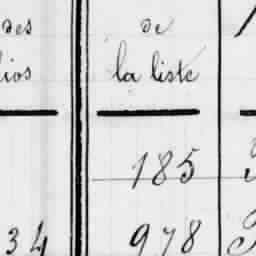 des de
lios la liste
185
34 978